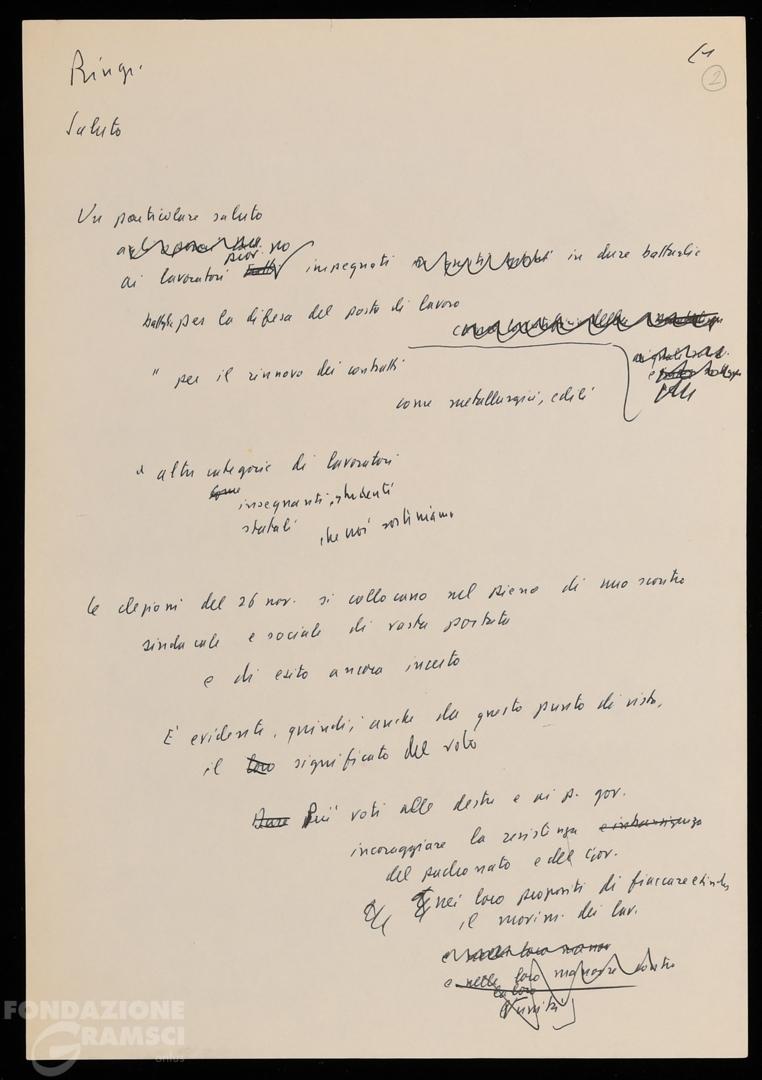 Ring.
2
Saluto
Un particolare saluto
ai lavoratori impegnati in dure battaglie
battaglie per la difesa del posto di lavoro
" per il rinnovo dei contratti
come metallurgici, edili
altre categorie di lavoratori
come
insegnanti, studenti
statali che noi sosteniamo
Le elezioni del 26 nov. si collocano nel pieno di uno scontro
sindacale e sociale di vasta portata
e di esito ancora incerto
E' evidente, quindi, anche da questo punto di vista,
il loro significato del voto
Dare Più voti alle destre e ai p. gov.
incoraggiare la resistenza
del padronato e del Gov.
nei loro propositi di fiaccare
il movim. dei lav.
e nelle loro manovre contro
la loro
unità
FONDAZIONE
GRAMSCI
onlus